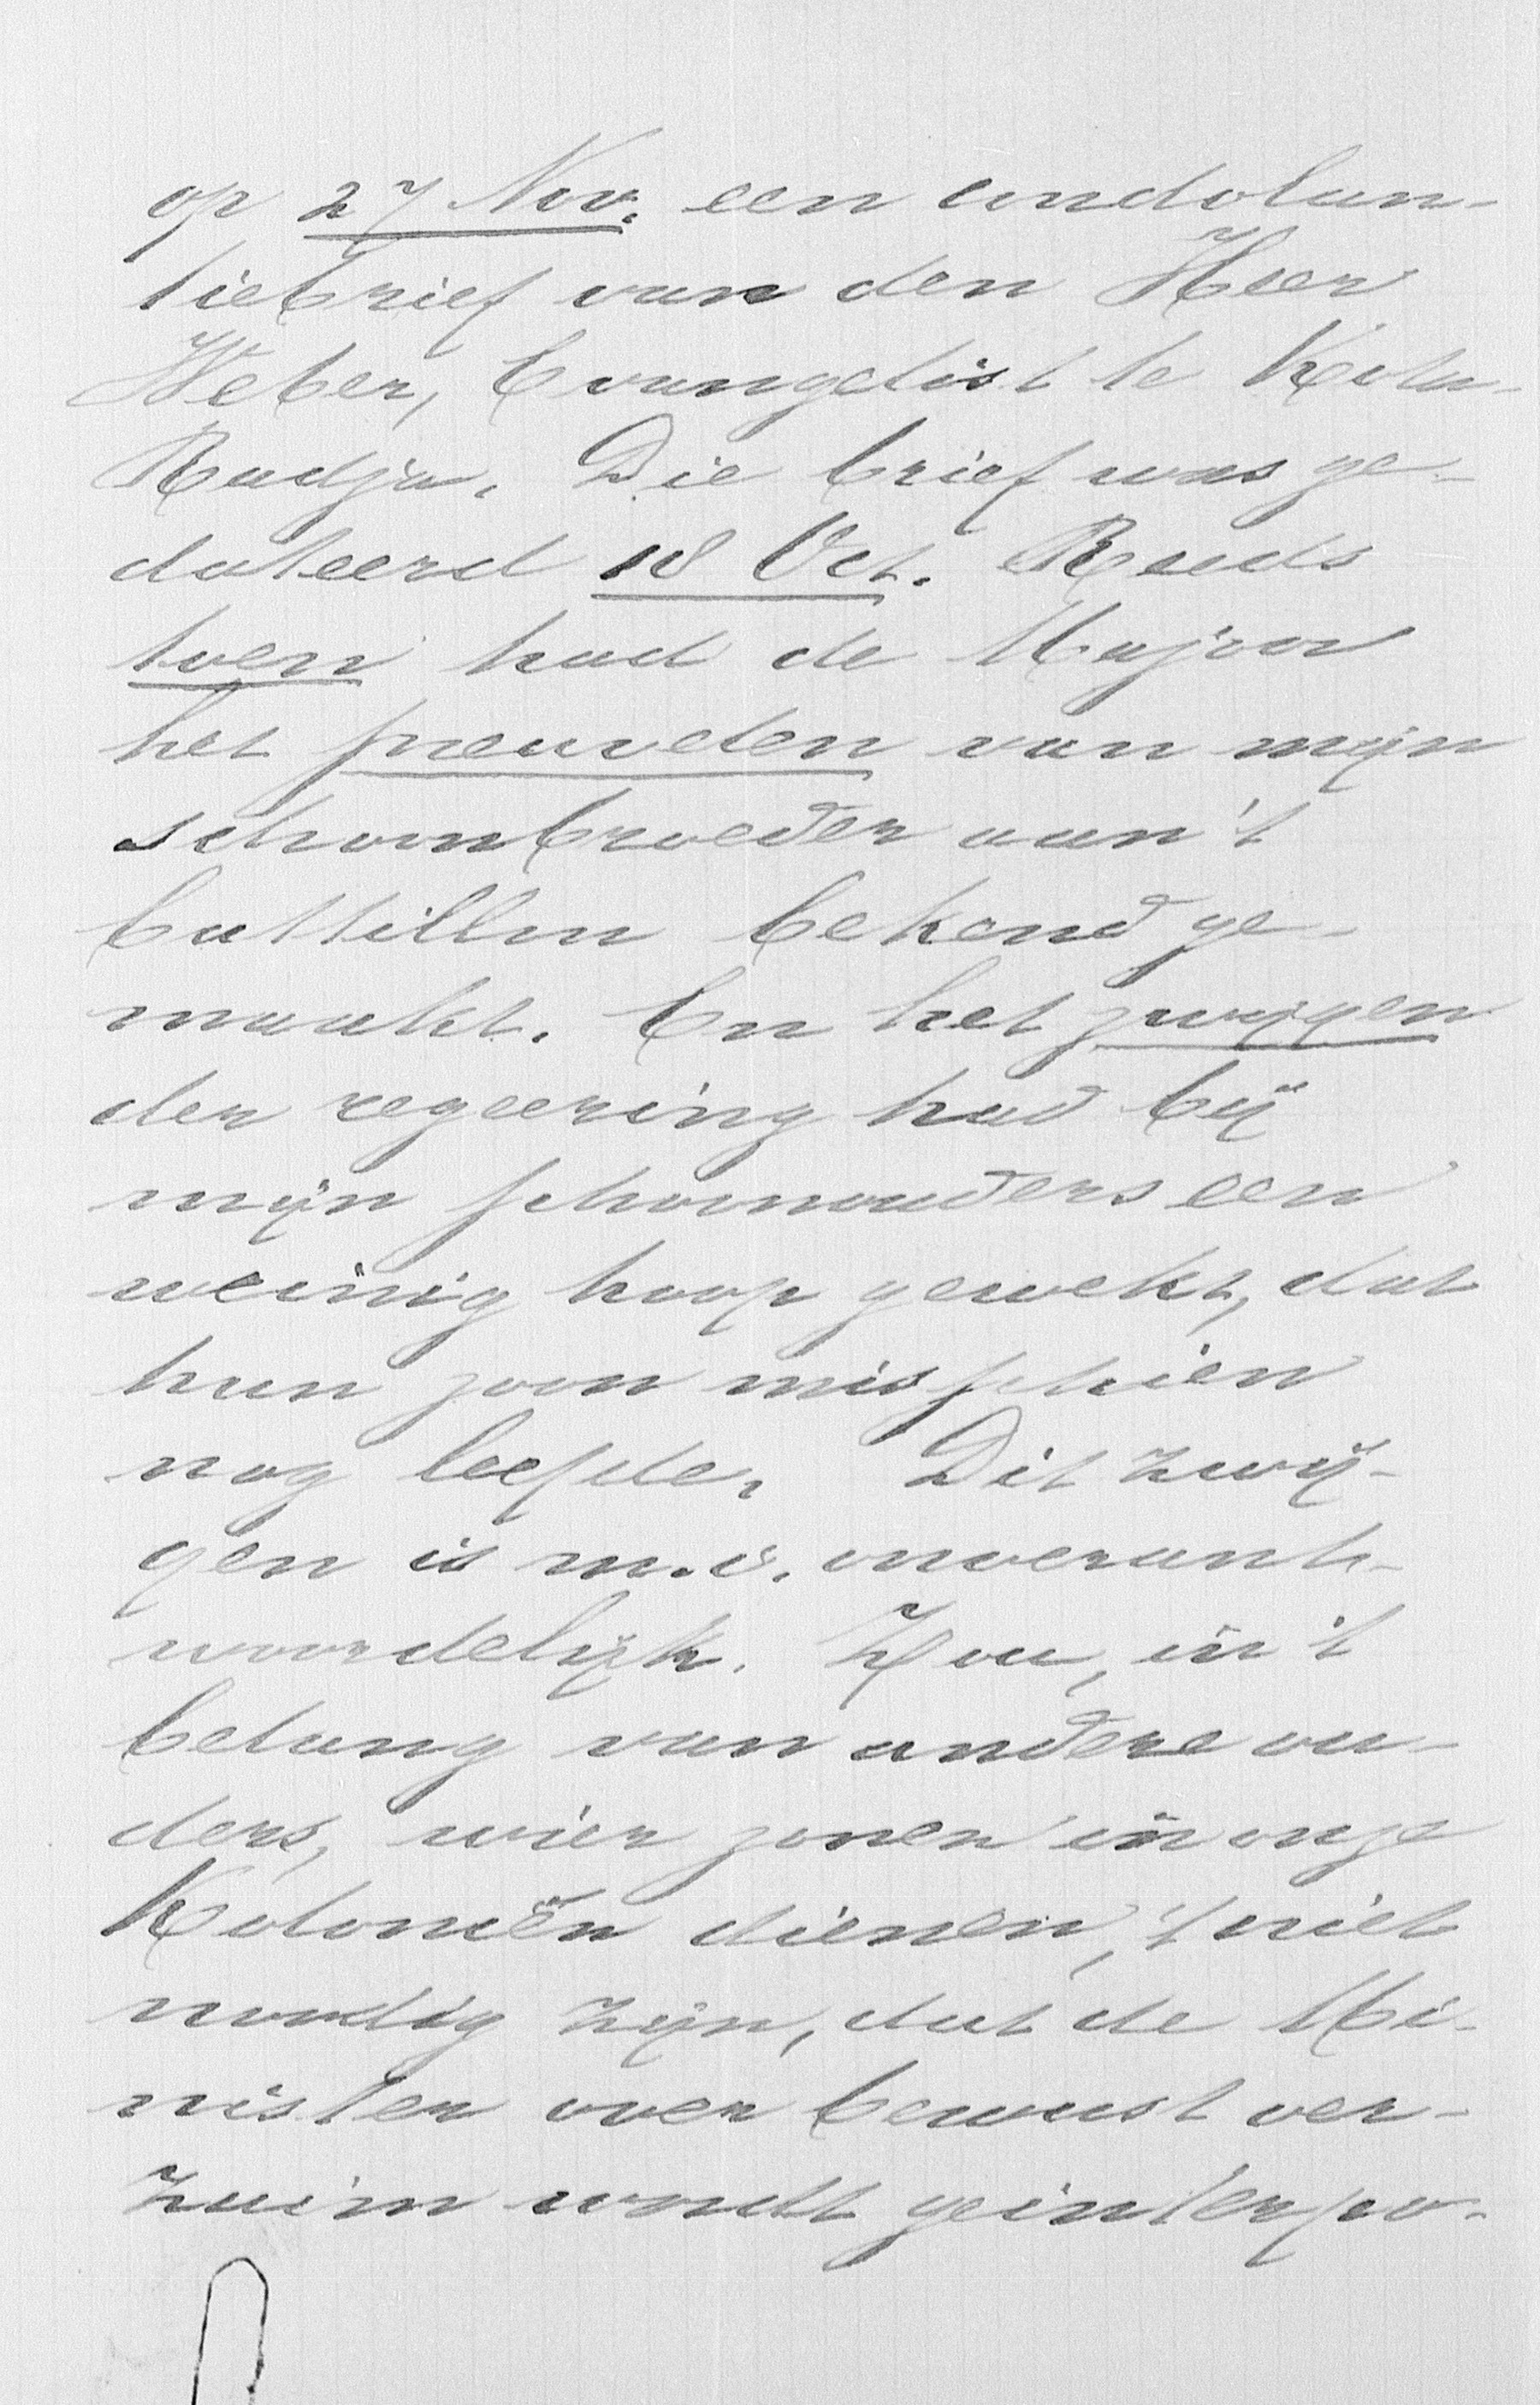 op 27 Nov. een condolean-
tiebrief van den Heer
Weber, Evangelist te Kota-
Radja. Die brief was ge-
dateerd 18 Oct. Reeds
toen had de Majoor
het sneuvelen van mijn
schoonbroeder aan 't
battillon bekend ge-
maakt. En het zwijgen
der regeering had bij
mijn schoonouders een
weinig hoop gewekt, dat
hun zoon misschien
nog leefde. Dit zwij-
gen is m.i. onverant-
woordelijk. Zou, in 't
belang van andere ou-
ders, wier zonen in onze
Koloniën dienen, 't niet
noodig zijn, dat de Mi-
nister over bewust ver-
zuim wordt geinterpo-